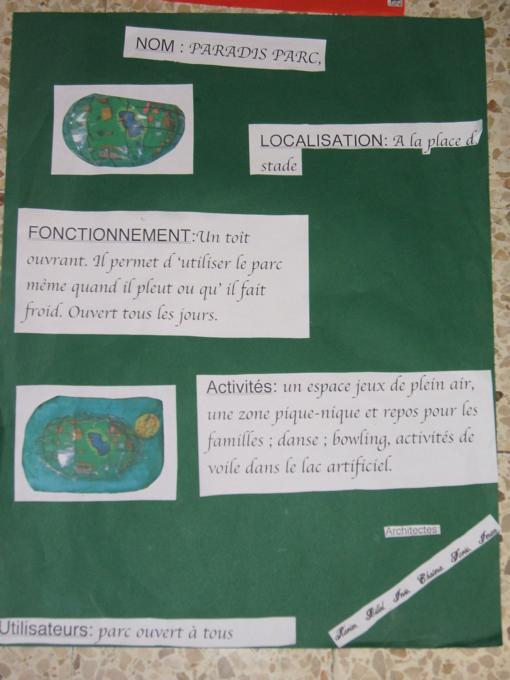 NOM : PARADIS PARC,
LOCALISATION: A la place d
stade
FONCTIONNEMENT:Un toît
ouvrant. Il permet d 'utiliser le parc
même quand il pleut ou qu' il fait
froid. Ouvert tous les jours.
Activités: un espace jeux de plein air,
une zone pique-nique et repos pour les
familles ; danse ; bowling, activités de
voile dans le lac artificiel.
Architectes
Utilisateurs: parc ouvert à tous